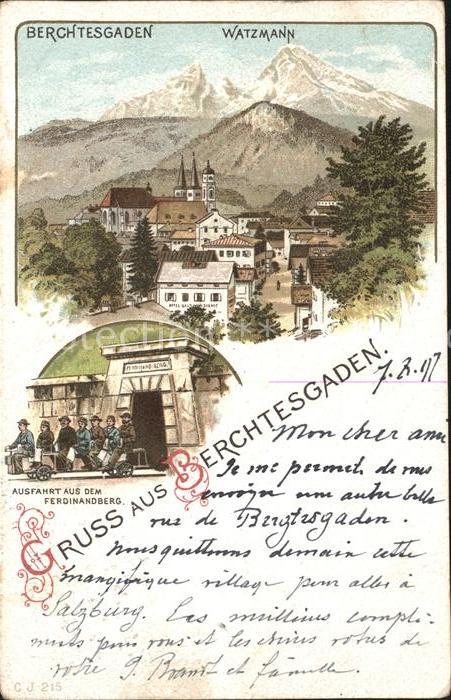 BERCHTESGADEN WATZMANN
FERDINAND-BERG.
AUSFAHRT AUS DEM
FERDINANDBERG.
GRUSS AUS BERCHTESGADEN.
Mon cher ami
Je me permets de vous
envoyer une autre belle
vue de Bergtesgaden.
Nous quittons demain cette
magnifique village pour aller à
Salzburg. Les meilleurs compli-
ments pour vous et les chères
votre J. Brandt et famille.
C J 215